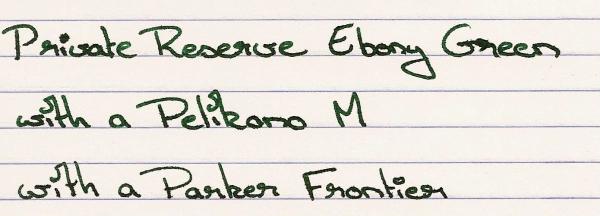 Private Reserve Ebony Green
with a Pelikano M
with a Parker Frontier